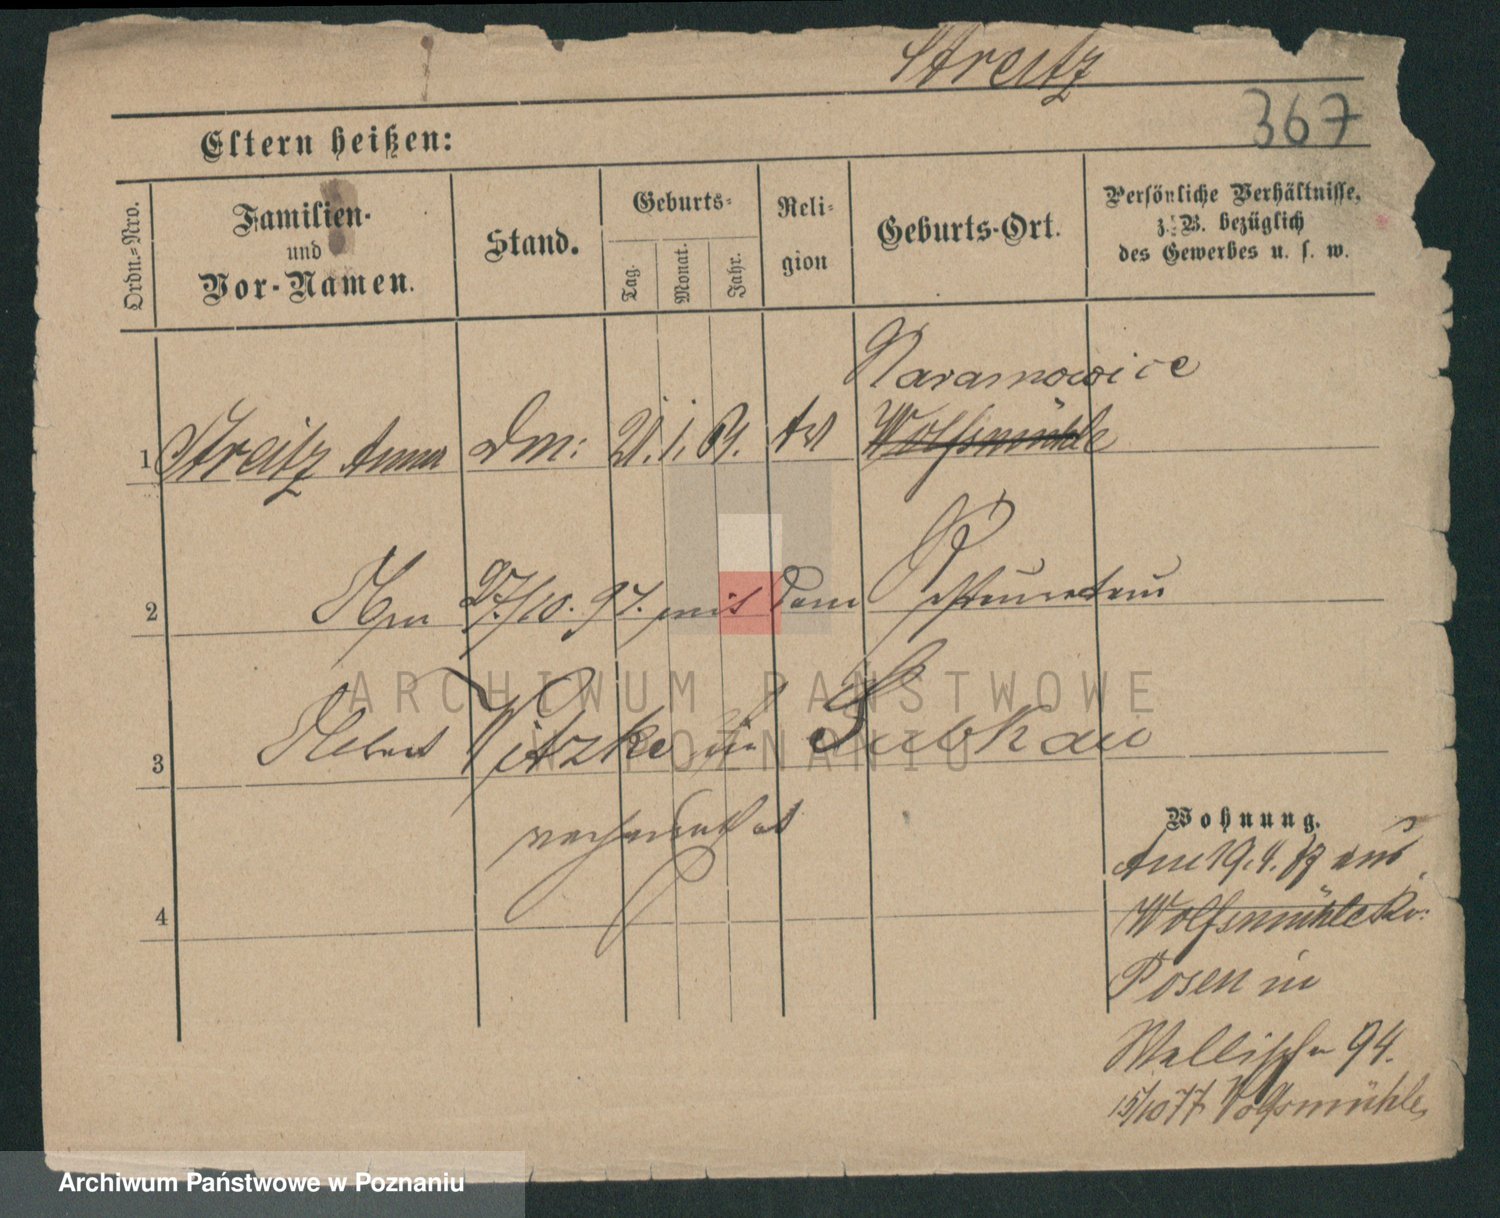 Streitz
367
Eltern heißen:
Ordn.-Nro.
Familien-
und
Vor-Namen.
Stand.
Geburts-
Tag.
Monat.
Jahr.
Reli-
gion
Geburts-Ort.
Persönliche Verhältnisse,
z. B. bezüglich
des Gewerbes u. s. w.
Naramowice
1 Streitz Anna Dm: 21. 1. 69. Wolfsmühle
2 27/10. 97. mit dem
3 Witzke in Subkau
verheirathet
4
Wohnung.
Am 19.4. 89 aus
Wolfsmühle Kr:
Posen in
Wallischei 94.
15/10 77 Wolfsmühle
ARCHIWUM PAŃSTWOWE
W POZNANIU
Archiwum Państwowe w Poznaniu